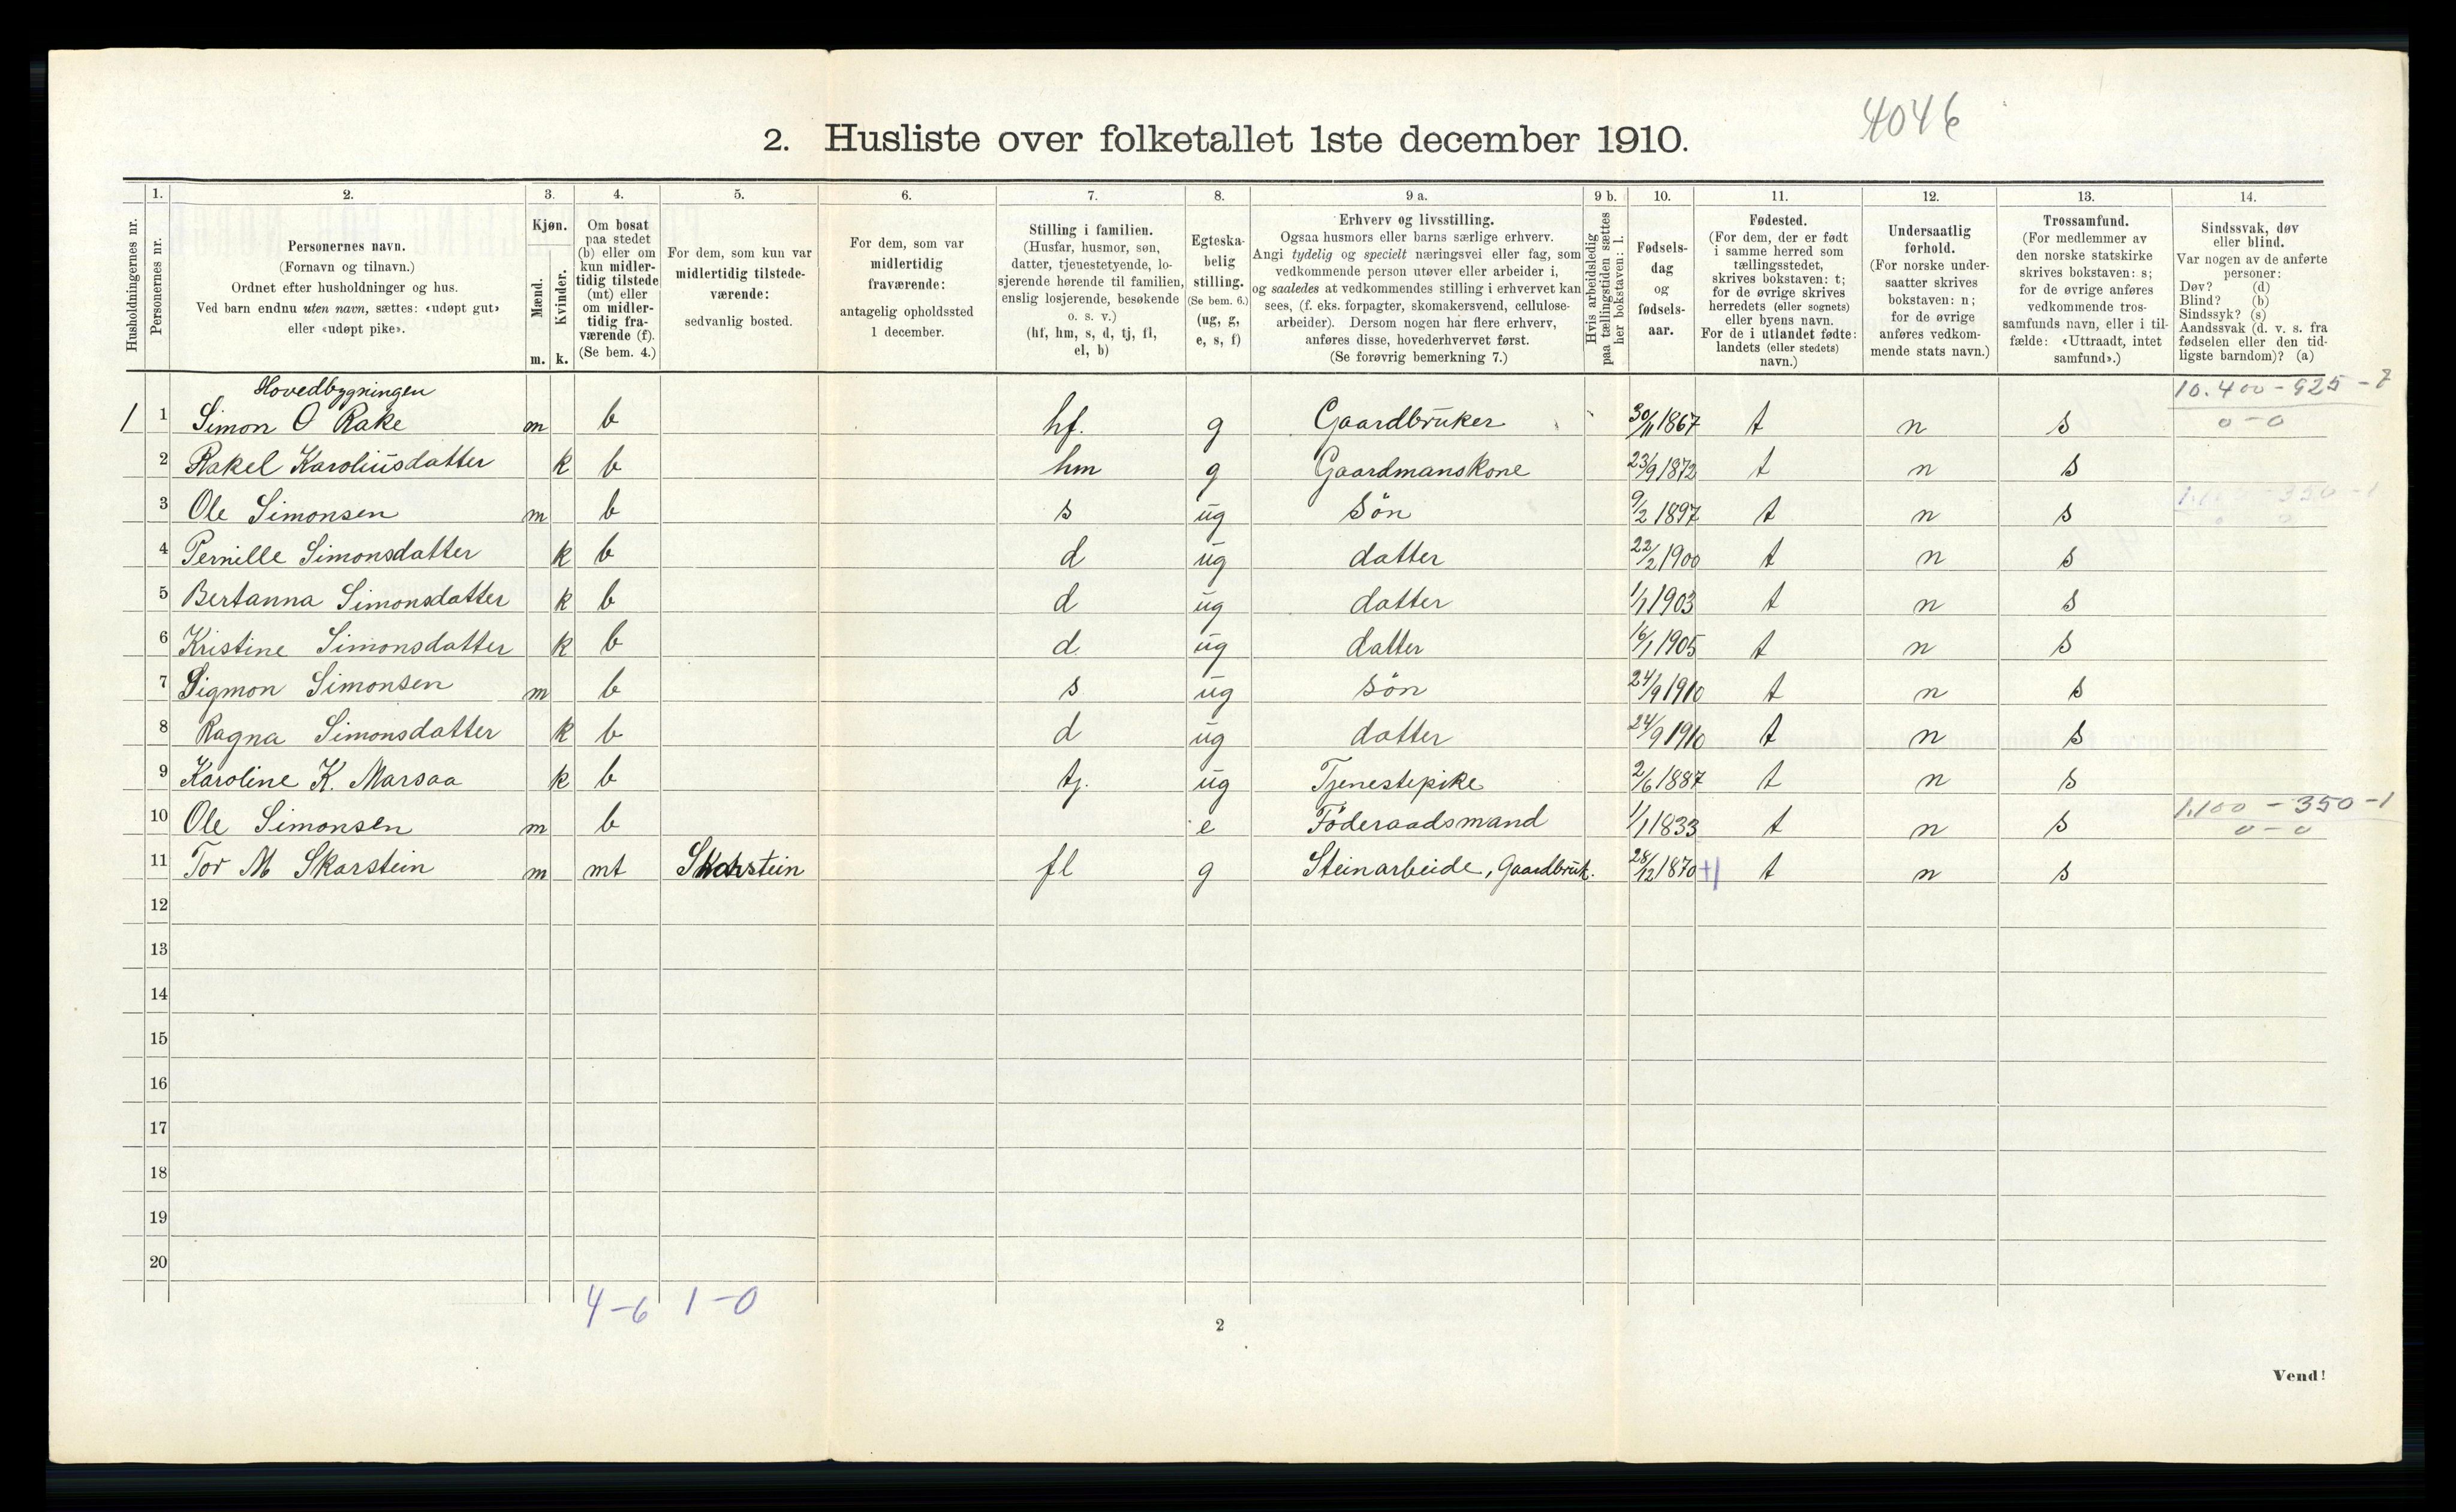 4046
2. Husliste over folketallet 1ste december 1910.
Husholdningernes nr.
1. Personernes nr.
2. Personernes navn. (Fornavn og tilnavn.) Ordnet efter husholdninger og hus. Ved barn endnu uten navn, sættes: «udøpt gut» eller «udøpt pike».
3. Kjøn. Mænd. m. Kvinder. k.
4. Om bosat paa stedet (b) eller om kun midlertidig tilstede (mt) eller om midlertidig fraværende (f). (Se bem. 4.)
5. For dem, som kun var midlertidig tilstedeværende: sedvanlig bosted.
6. For dem, som var midlertidig fraværende: antagelig opholdssted 1 december.
7. Stilling i familien. (Husfar, husmor, søn, datter, tjenestetyende, losjerende hørende til familien, enslig losjerende, besøkende o. s. v.) (hf, hm, s, d, tj, fl, el, b)
8. Egteskabelig stilling. (Se bem. 6.) (ug, g, e, s, f)
9 a. Erhverv og livsstilling. Ogsaa husmors eller barns særlige erhverv. Angi tydelig og specielt næringsvei eller fag, som vedkommende person utøver eller arbeider i, og saaledes at vedkommendes stilling i erhvervet kan sees, (f. eks. forpagter, skomakersvend, cellulosearbeider). Dersom nogen har flere erhverv, anføres disse, hovederhvervet først. (Se forøvrig bemerkning 7.)
9 b. Hvis arbeidsledig paa tællingstiden sættes her bokstaven: l.
10. Fødselsdag og fødselsaar.
11. Fødested. (For dem, der er født i samme herred som tællingsstedet, skrives bokstaven: t; for de øvrige skrives herredets (eller sognets) eller byens navn. For de i utlandet fødte: landets (eller stedets) navn.)
12. Undersaatlig forhold. (For norske undersaatter skrives bokstaven: n; for de øvrige anføres vedkommende stats navn.)
13. Trossamfund. (For medlemmer av den norske statskirke skrives bokstaven: s; for de øvrige anføres vedkommende trossamfunds navn, eller i tilfælde: «Uttraadt, intet samfund».)
14. Sindssvak, døv eller blind. Var nogen av de anførte personer: Døv? (d) Blind? (b) Sindssyk? (s) Aandssvak (d. v. s. fra fødselen eller den tidligste barndom)? (a)
Hovedbygningen
10.400 - 925 - 7
1 1 Simon O Rake m b hf. g Gaardbruker 30/11 1867 t n s 0 - 0
2 Rakel Karoliusdatter k b hm g Gaardmanskone 23/9 1872 t n s
1.100 - 350 - 1
3 Ole Simonsen m b s ug Søn 9/2 1897 t n s
4 Pernille Simonsdatter k b d ug datter 22/2 1900 t n s
5 Bertanna Simonsdatter k b d ug datter 1/1 1903 t n s
6 Kristine Simonsdatter k b d ug datter 16/1 1905 t n s
7 Sigmon Simonsen m b s ug Søn 24/9 1910 t n s
8 Ragna Simonsdatter k b d ug datter 24/9 1910 t n s
9 Karoline K. Marsaa k b tj. ug Tjenestepike 2/6 1887 t n s
1.100 - 350 - 1
10 Ole Simonsen m b e Föderaadsmand 1/1 1833 t n s 0 - 0
11 Tor M Skarstein m mt Skarstein fl g Steinarbeide, Gaardbruk. 28/12 1870 +1 t n s
12
13
14
15
16
17
18
19
20
4-6 1-0
2
Vend!